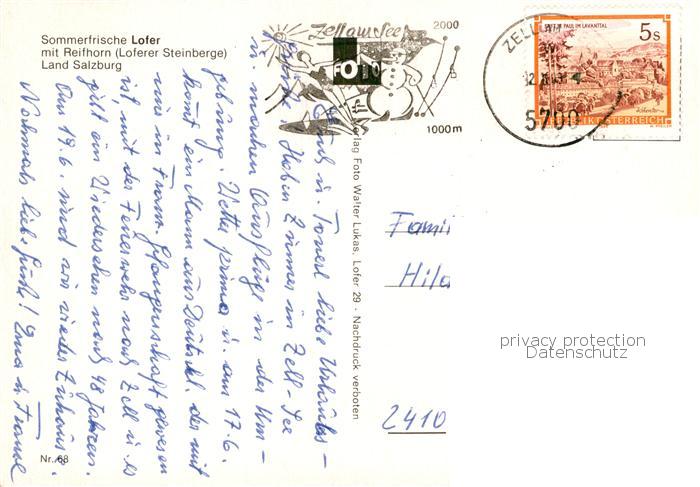 Sommerfrische Lofer
mit Reifhorn (Loferer Steinberge)
Land Salzburg
Zell am See
2000
FOTO
1000m
ZELL
5700
5s
STIFT ST. PAUL IM LAVANTTAL
REPUBLIK ÖSTERREICH
u. Tonerl liebe Urlaubs-
grüße! Haben Zimmer in Zell-See
u. machen Ausflüge in der Um-
gebung. Wetter prima u. am 17.6.
kommt ein Mann aus Deutschl. der mit
uns in Franz. Gefangenschaft gewesen
ist, mit der Feuerwehr nach Zell u. es
gibt ein Wiedersehen nach 48 Jahren.
Am 19.6. sind wir wieder Zuhause.
Nochmals liebe Grüße! Erna u. Franz
Verlag Foto Walter Lukas, Lofer 29 · Nachdruck verboten
Nr. 68
Famil
Hila
2410
privacy protection
Datenschutz